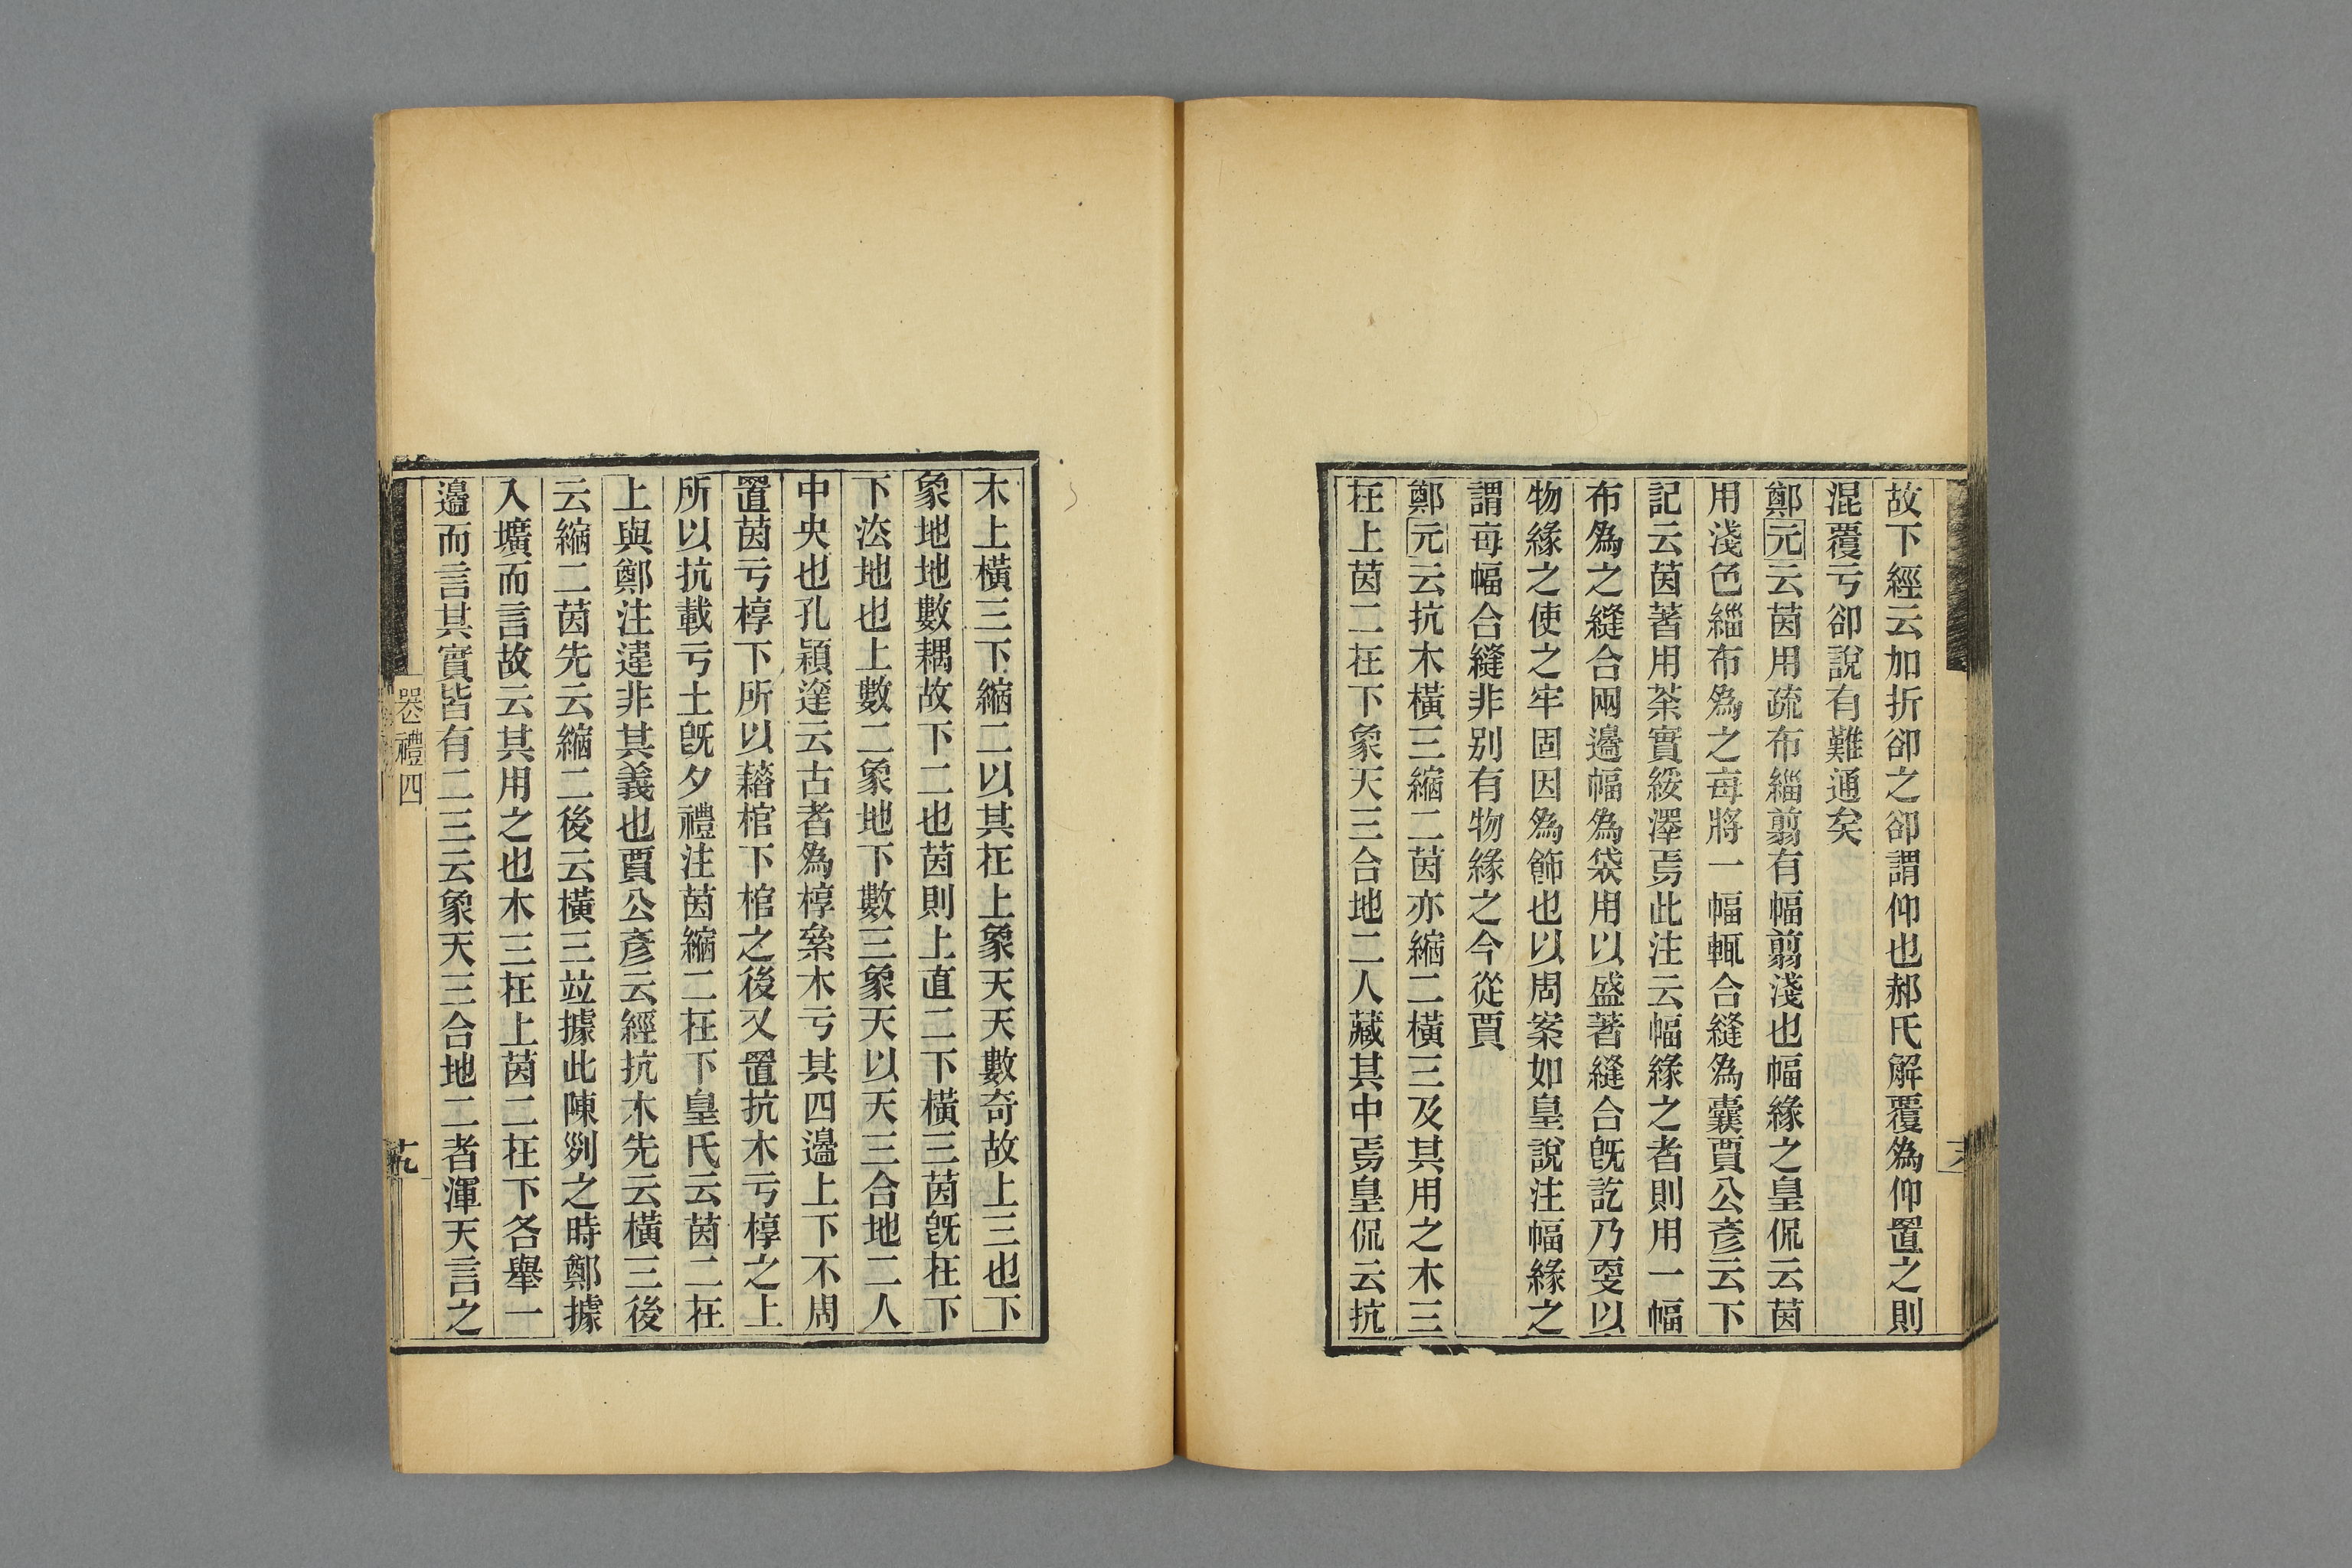 故下經云加折卻之卻謂仰也郝氏解覆爲仰置之則
混覆亏卻說有難通矣
鄭元云茵用疏布緇翦有幅翦淺也幅緣之皇侃云茵
用淺色緇布爲之每將一幅輒合縫爲囊賈公彥云下
記云茵著用荼實綏澤焉此注云幅緣之者則用一幅
布爲之縫合兩邊幅爲袋用以盛著縫合旣訖乃更以
物緣之使之牢固因爲飾也以周案如皇說注幅緣之
謂每幅合縫非别有物緣之今從賈
鄭元云抗木橫三縮二茵亦縮二橫三及其用之木三
在上茵二在下象天三合地二人藏其中焉皇侃云抗
木上橫三下縮二以其在上象天天數奇故上三也下
象地地數耦故下二也茵則上直二下橫三茵旣在下
下㳒地也上數二象地下數三象天以天三合地二人
中央也孔穎達云古者爲椁絫木亏其四邊上下不周
置茵亏椁下所以藉棺下棺之後又置抗木亏椁之上
所以抗載亏土旣夕禮注茵縮二在下皇氏云茵二在
上與鄭注違非其義也賈公彥云經抗木先云橫三後
云縮二茵先云縮二後云橫三竝據此陳列之時鄭據
入壙而言故云其用之也木三在上茵二在下各舉一
邊而言其實皆有二三云象天三合地二者渾天言之
喪禮四
十九